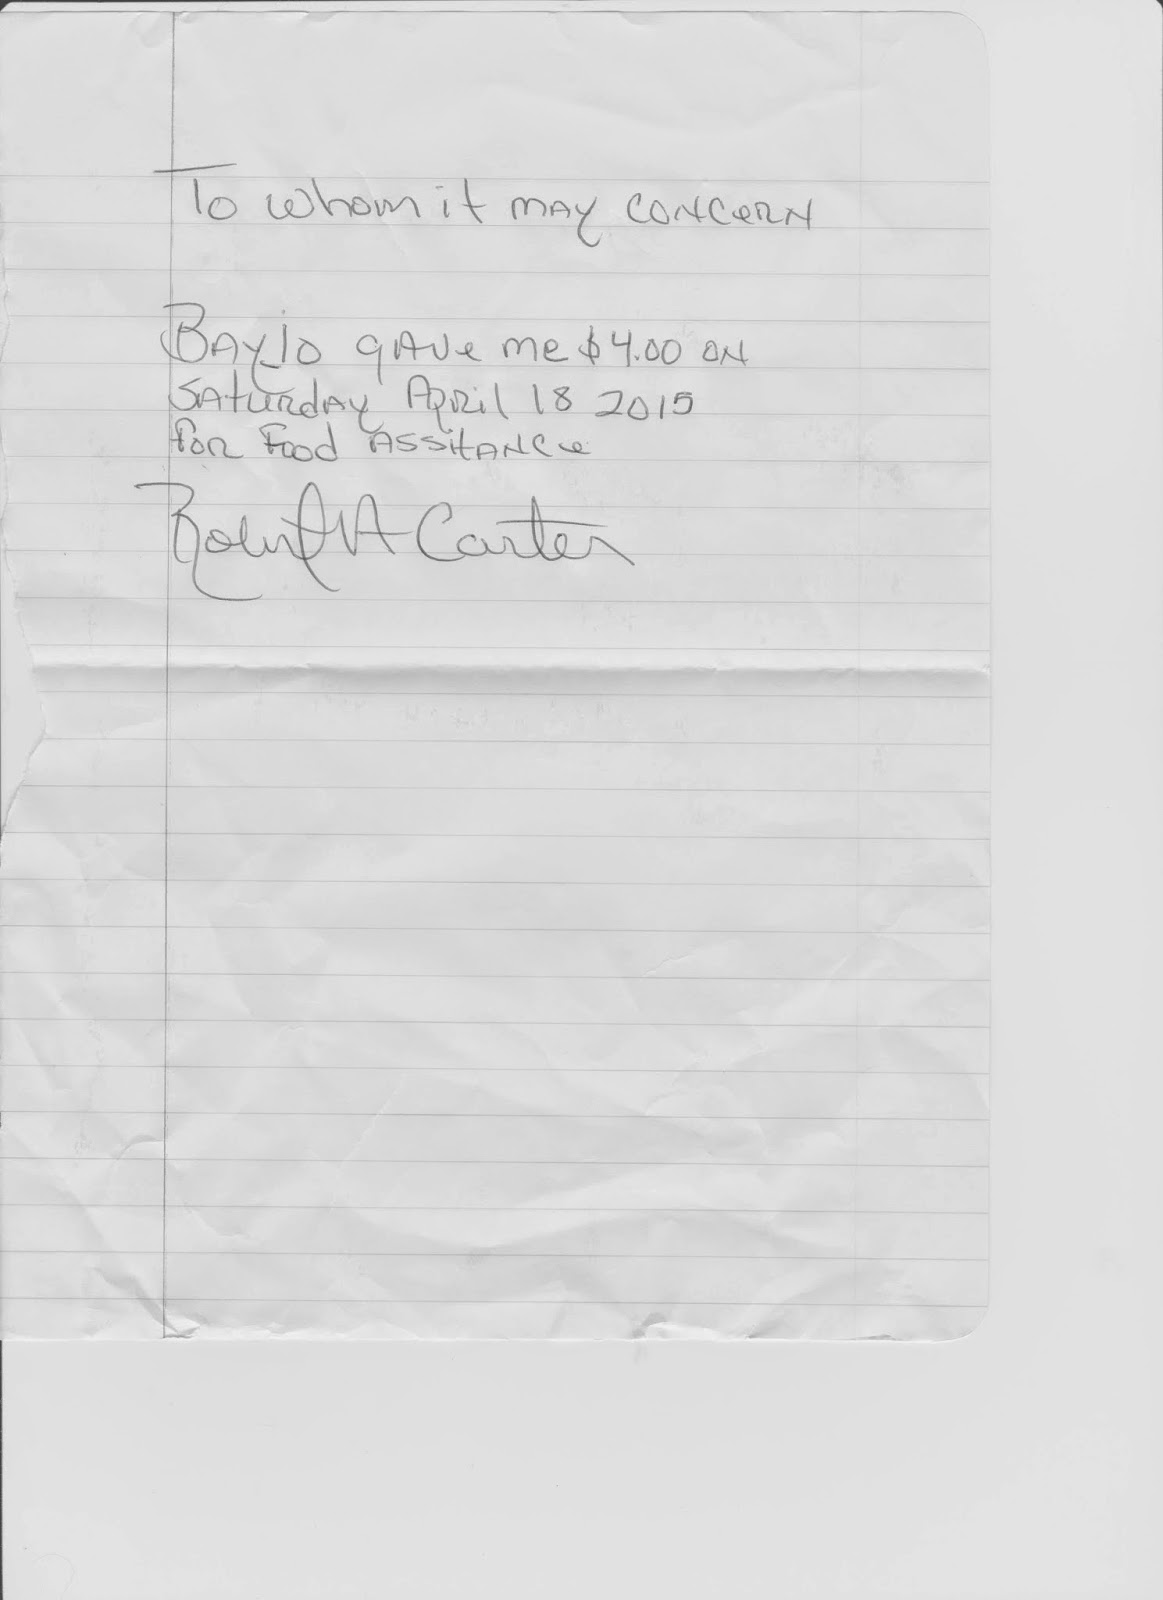 To whom it may concern
Bayjo gave me $4.00 on
Saturday April 18 2015
for Food Assitance
Robert A Carter